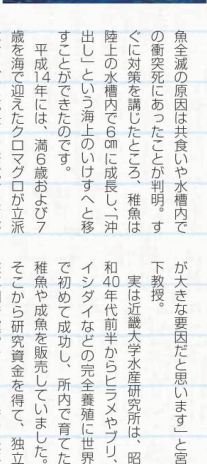 魚全滅の原因は共食いや水槽内で
の衝突死にあったことが判明。す
ぐに対策を講じたところ、稚魚は
陸上の水槽内で6㎝に成長し、「沖
出し」という海上のいけすへと移
すことができたのです。
平成14年には、満6歳および7
歳を海で迎えたクロマグロが立派
が大きな要因だと思います」と宮
下教授。
実は近畿大学水産研究所は、昭
和40年代前半からヒラメやブリ、
イシダイなどの完全養殖に世界
で初めて成功し、所内で育てた
稚魚や成魚を販売していました。
そこから研究資金を得て、独立